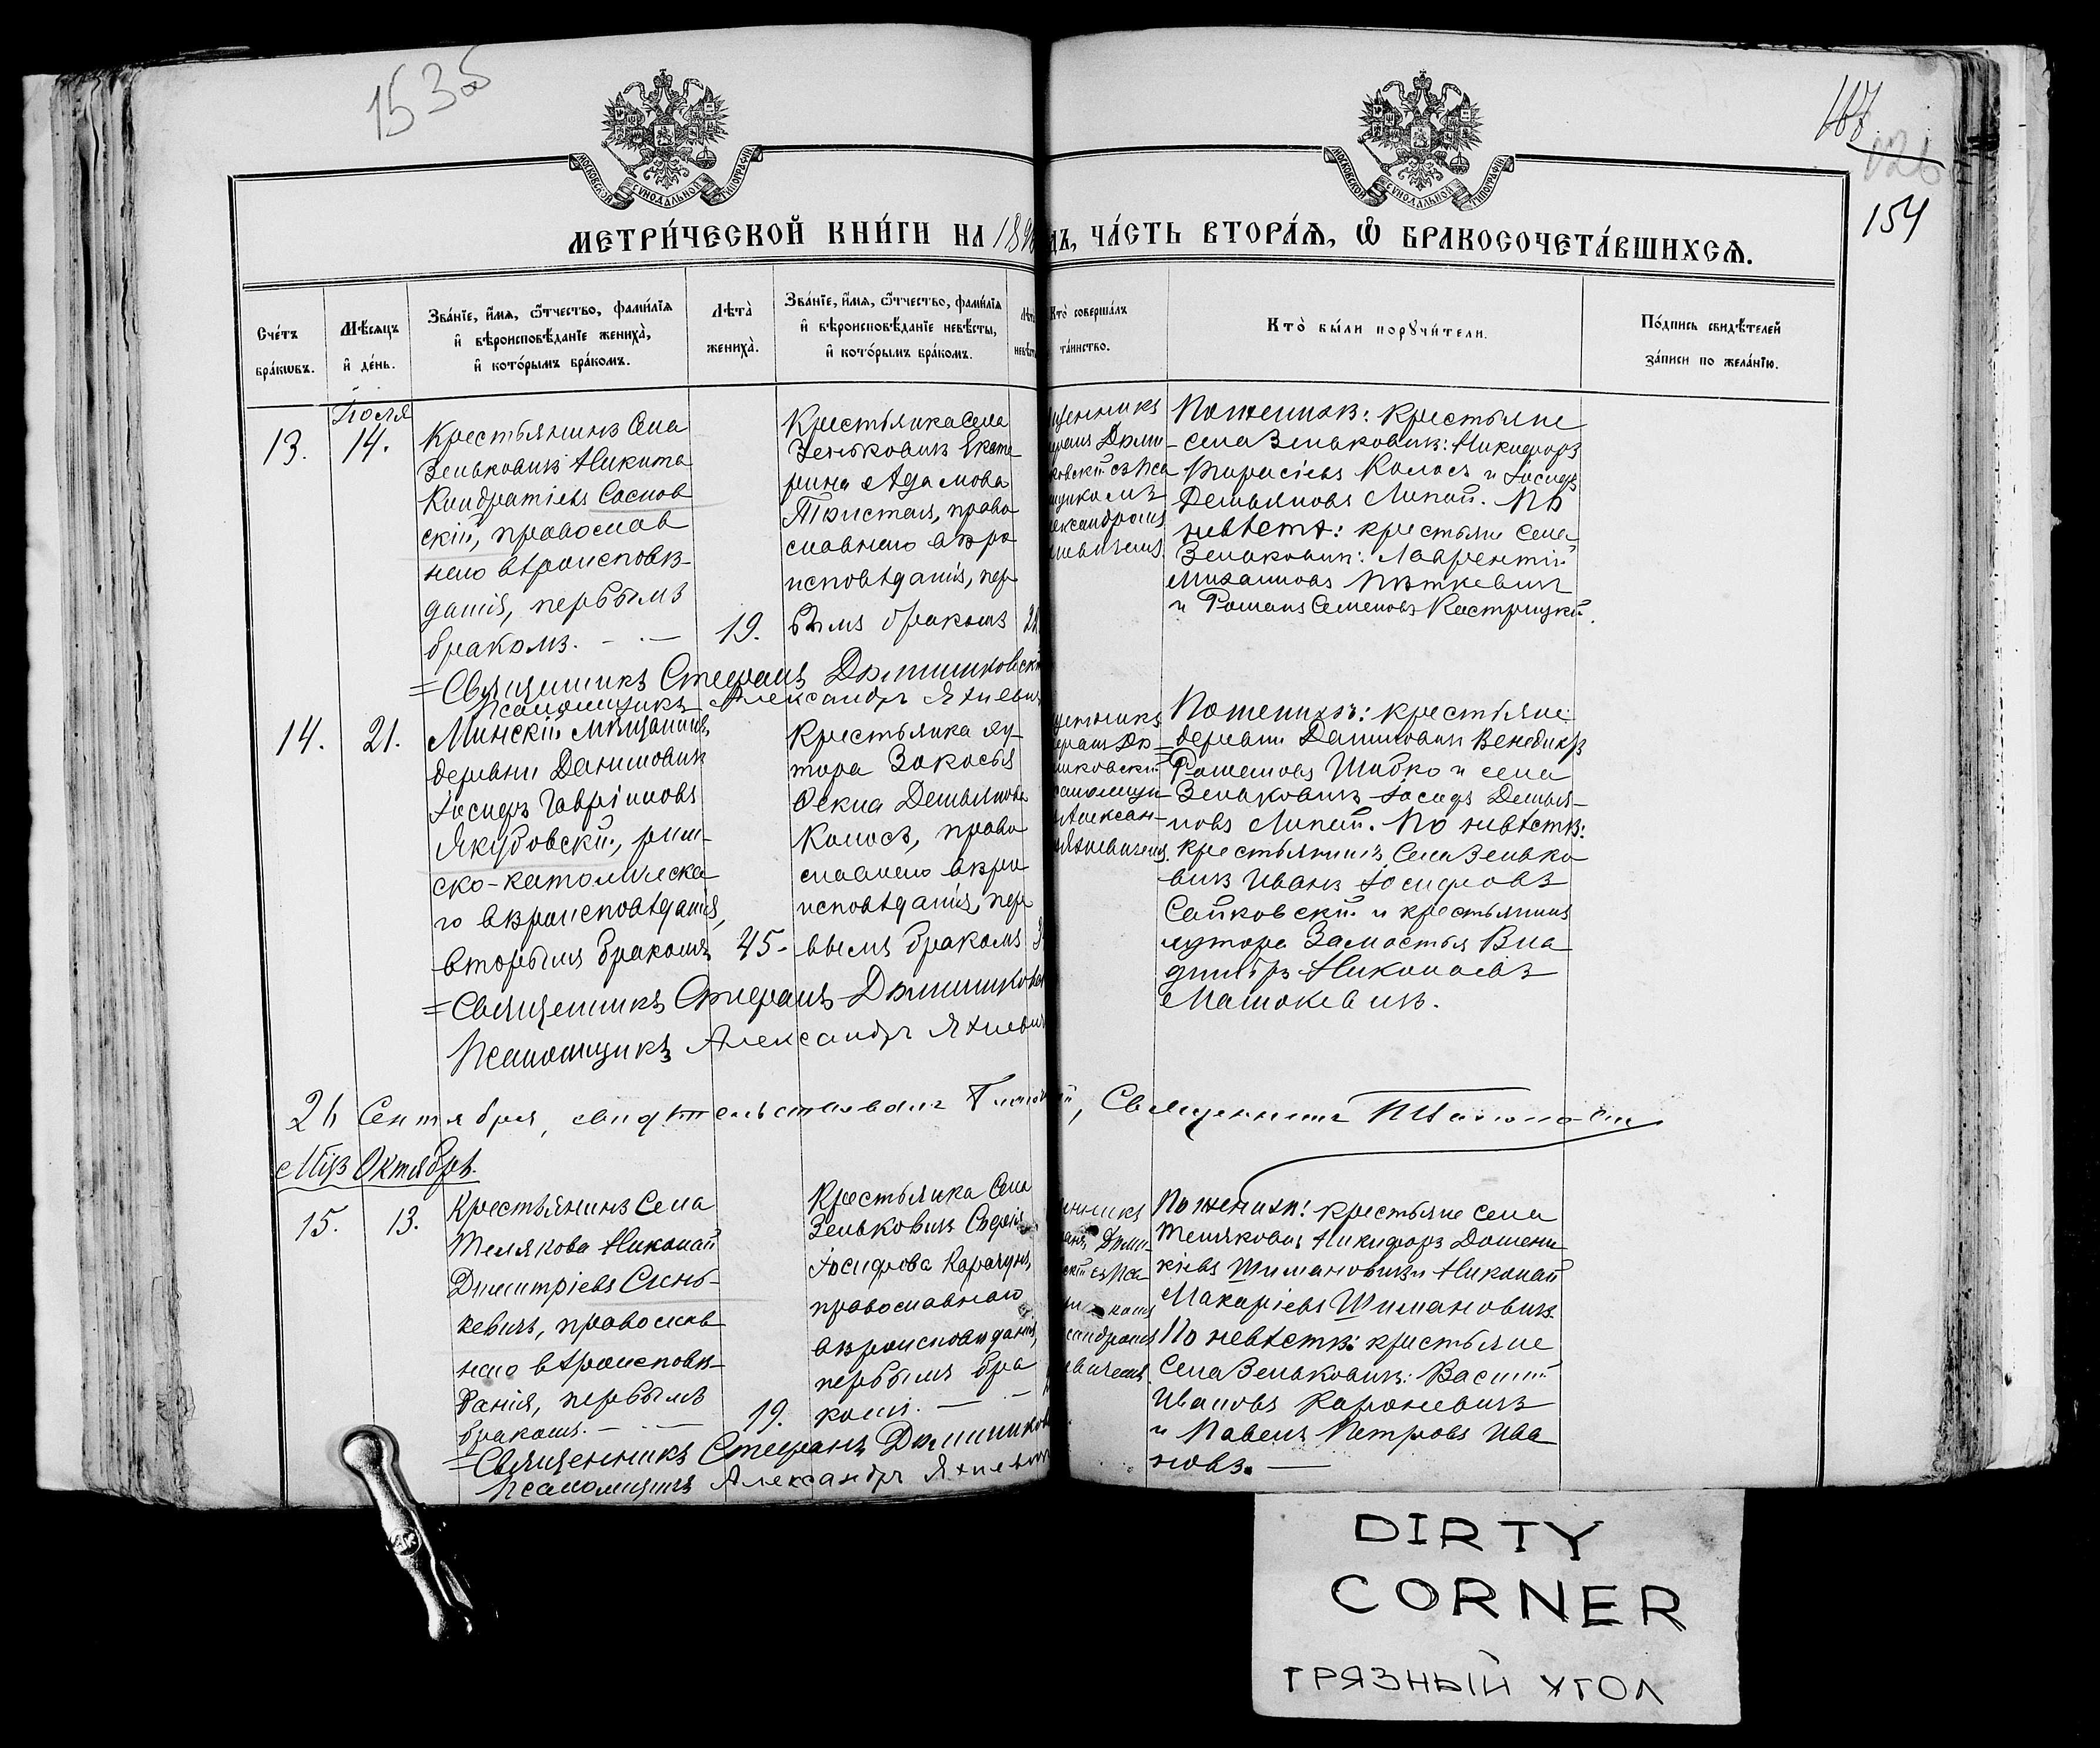 153об
167
126
154
МОСКОВСКОЙ СУНОДАЛЬНОЙ ТИПОГРАФІИ
МОСКОВСКОЙ СУНОДАЛЬНОЙ ТИПОГРАФІИ
МЕТРИ́ЧЕСКОЙ КНИ́ГИ НА 189
ДЪ, ЧА́СТЬ ВТОРА́Я, Ѽ БРАКОСОЧЕТА́ВШИХСЯ.
Сче́тъ
бра́кѡвъ.
Мѣ́сяцъ
и҆ де́нь.
Зва́нїе, и҆́мя, ѻ҆́тчество, фами́лїя
и҆ вѣроисповѣ́данїе жениха̀,
и҆ кото́рымъ бра́комъ.
Лѣта̀
жениха̀.
Зва́нїе, и҆́мя, ѻ҆́тчество, фами́лїя
и҆ вѣроисповѣ́данїе невѣ́сты,
и҆ кото́рымъ бра́комъ.
Лѣта
невѣст
Кто̀ соверша́лъ
та́инство.
Кто̀ бы́ли порꙋчи́тели.
По́дпись свидѣ́телей
за́писи по жела́нїю.
Іюля
13.
14.
Крестьянинъ села
Зеньковичъ Никита
Кондратіевъ Соснов
скій, православ
наго вѣроисповѣ-
данія, первымъ
бракомъ. - . -
19.
Крестьянка села
Зеньковичъ Екате
рина Адамова
право
славнаго вѣро
исповѣданія, пер
вымъ бракомъ
22
щенникъ
Дыми-
ковскій съ пса
ломщикомъ
лександромъ
По женихѣ: крестьяне
села Зеньковичъ: Никифоръ
Тарасіевъ Колосъ и Іосифъ
Демьяновъ Липай. По
невѣстѣ: крестьяне села
Зеньковичъ: Лаврентій
Михаиловъ Петкевичъ
и Романъ Семеновъ Кастрицкій.
= Священникъ Стефанъ Дымишковскій
Псаломщикъ Александръ Яхневич
14.
21.
Минскій мѣщанинъ,
деревни Даниловичъ
Іосифъ Гавріиловъ
Якубовскій, рим-
ско-католическа-
го вѣроисповѣданія,
вторымъ бракомъ
45-
Крестьянка ху-
тора Замостья
Ѳекла Демьянова
Колосъ, право
славнаго вѣро
исповѣданія, пер
вымъ бракомъ
щенникъ
ефанъ Ды-
ишковскій
саломщи-
Алексан-
Яхневичемъ.
По женихѣ: крестьяне
деревни Даниловичъ Венедиктъ
Романовъ Шибко и села
Зеньковичъ Іосифъ Демья-
новъ Липай. По невѣстѣ:
крестьянинъ села Зенько
вичъ Иванъ Іосифовъ
Сайковскій и крестьянинъ
хутора Замостья Вла
диміръ Николаевъ
Матюкевичъ.
= Священникъ Стефанъ Дымишков
Псаломщикъ Александръ Яхневич
26 Сентября, свидѣтельствовалъ , Священникъ
Мѣсяцъ Октябрь.
15.
13.
Крестьянинъ села
Телякова Николай
Димитріевъ Синь-
кевичъ, православ
наго вѣроисповѣ-
данія, первымъ
бракомъ. - . -
19.
Крестьянка села
Зеньковичъ Софія
Іосифова Карачунъ,
православнаго
вѣроисповѣданія,
первымъ бра
комъ. -
нникъ
Дыми-
скій съ пса
ксандромъ
вичемъ.
По женихѣ: крестьяне села
Теляковичъ Никифоръ Домени
кіевъ Шимановичъ и Николай
Макаріевъ Шимановичъ.
По невѣстѣ: крестьяне
села Зеньковичъ: Василій
Ивановъ Кароневичъ
и Павелъ Петровъ Ива
новъ. -
= Священникъ Стефанъ Дымишков
Псаломщикъ Александръ Яхневич
DIRTY
CORNER
ГРЯЗНЫЙ УГОЛ